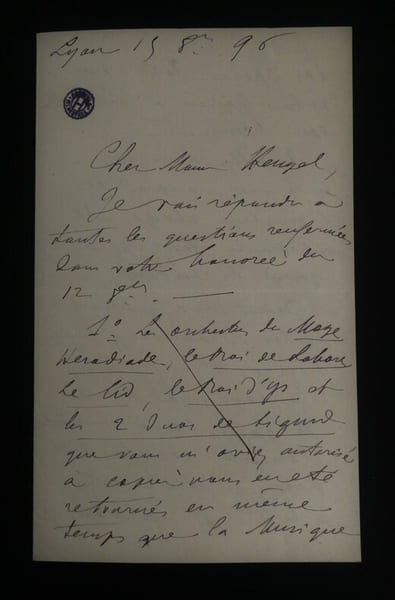 Lyon 15 8bre 96
Cher Monsieur Heugel,
Je vais répondre à
toutes les questions renfermées
dans votre honorée du
12 —
1o Les orchestres du Mage
Hérodiade, le Roi de Lahore
Le Cid, le Roi d'Ys et
les 2 Duos de Sigurd
que vous m'aviez autorisé
à copier vous ont été
retournés en même
temps que la Musique